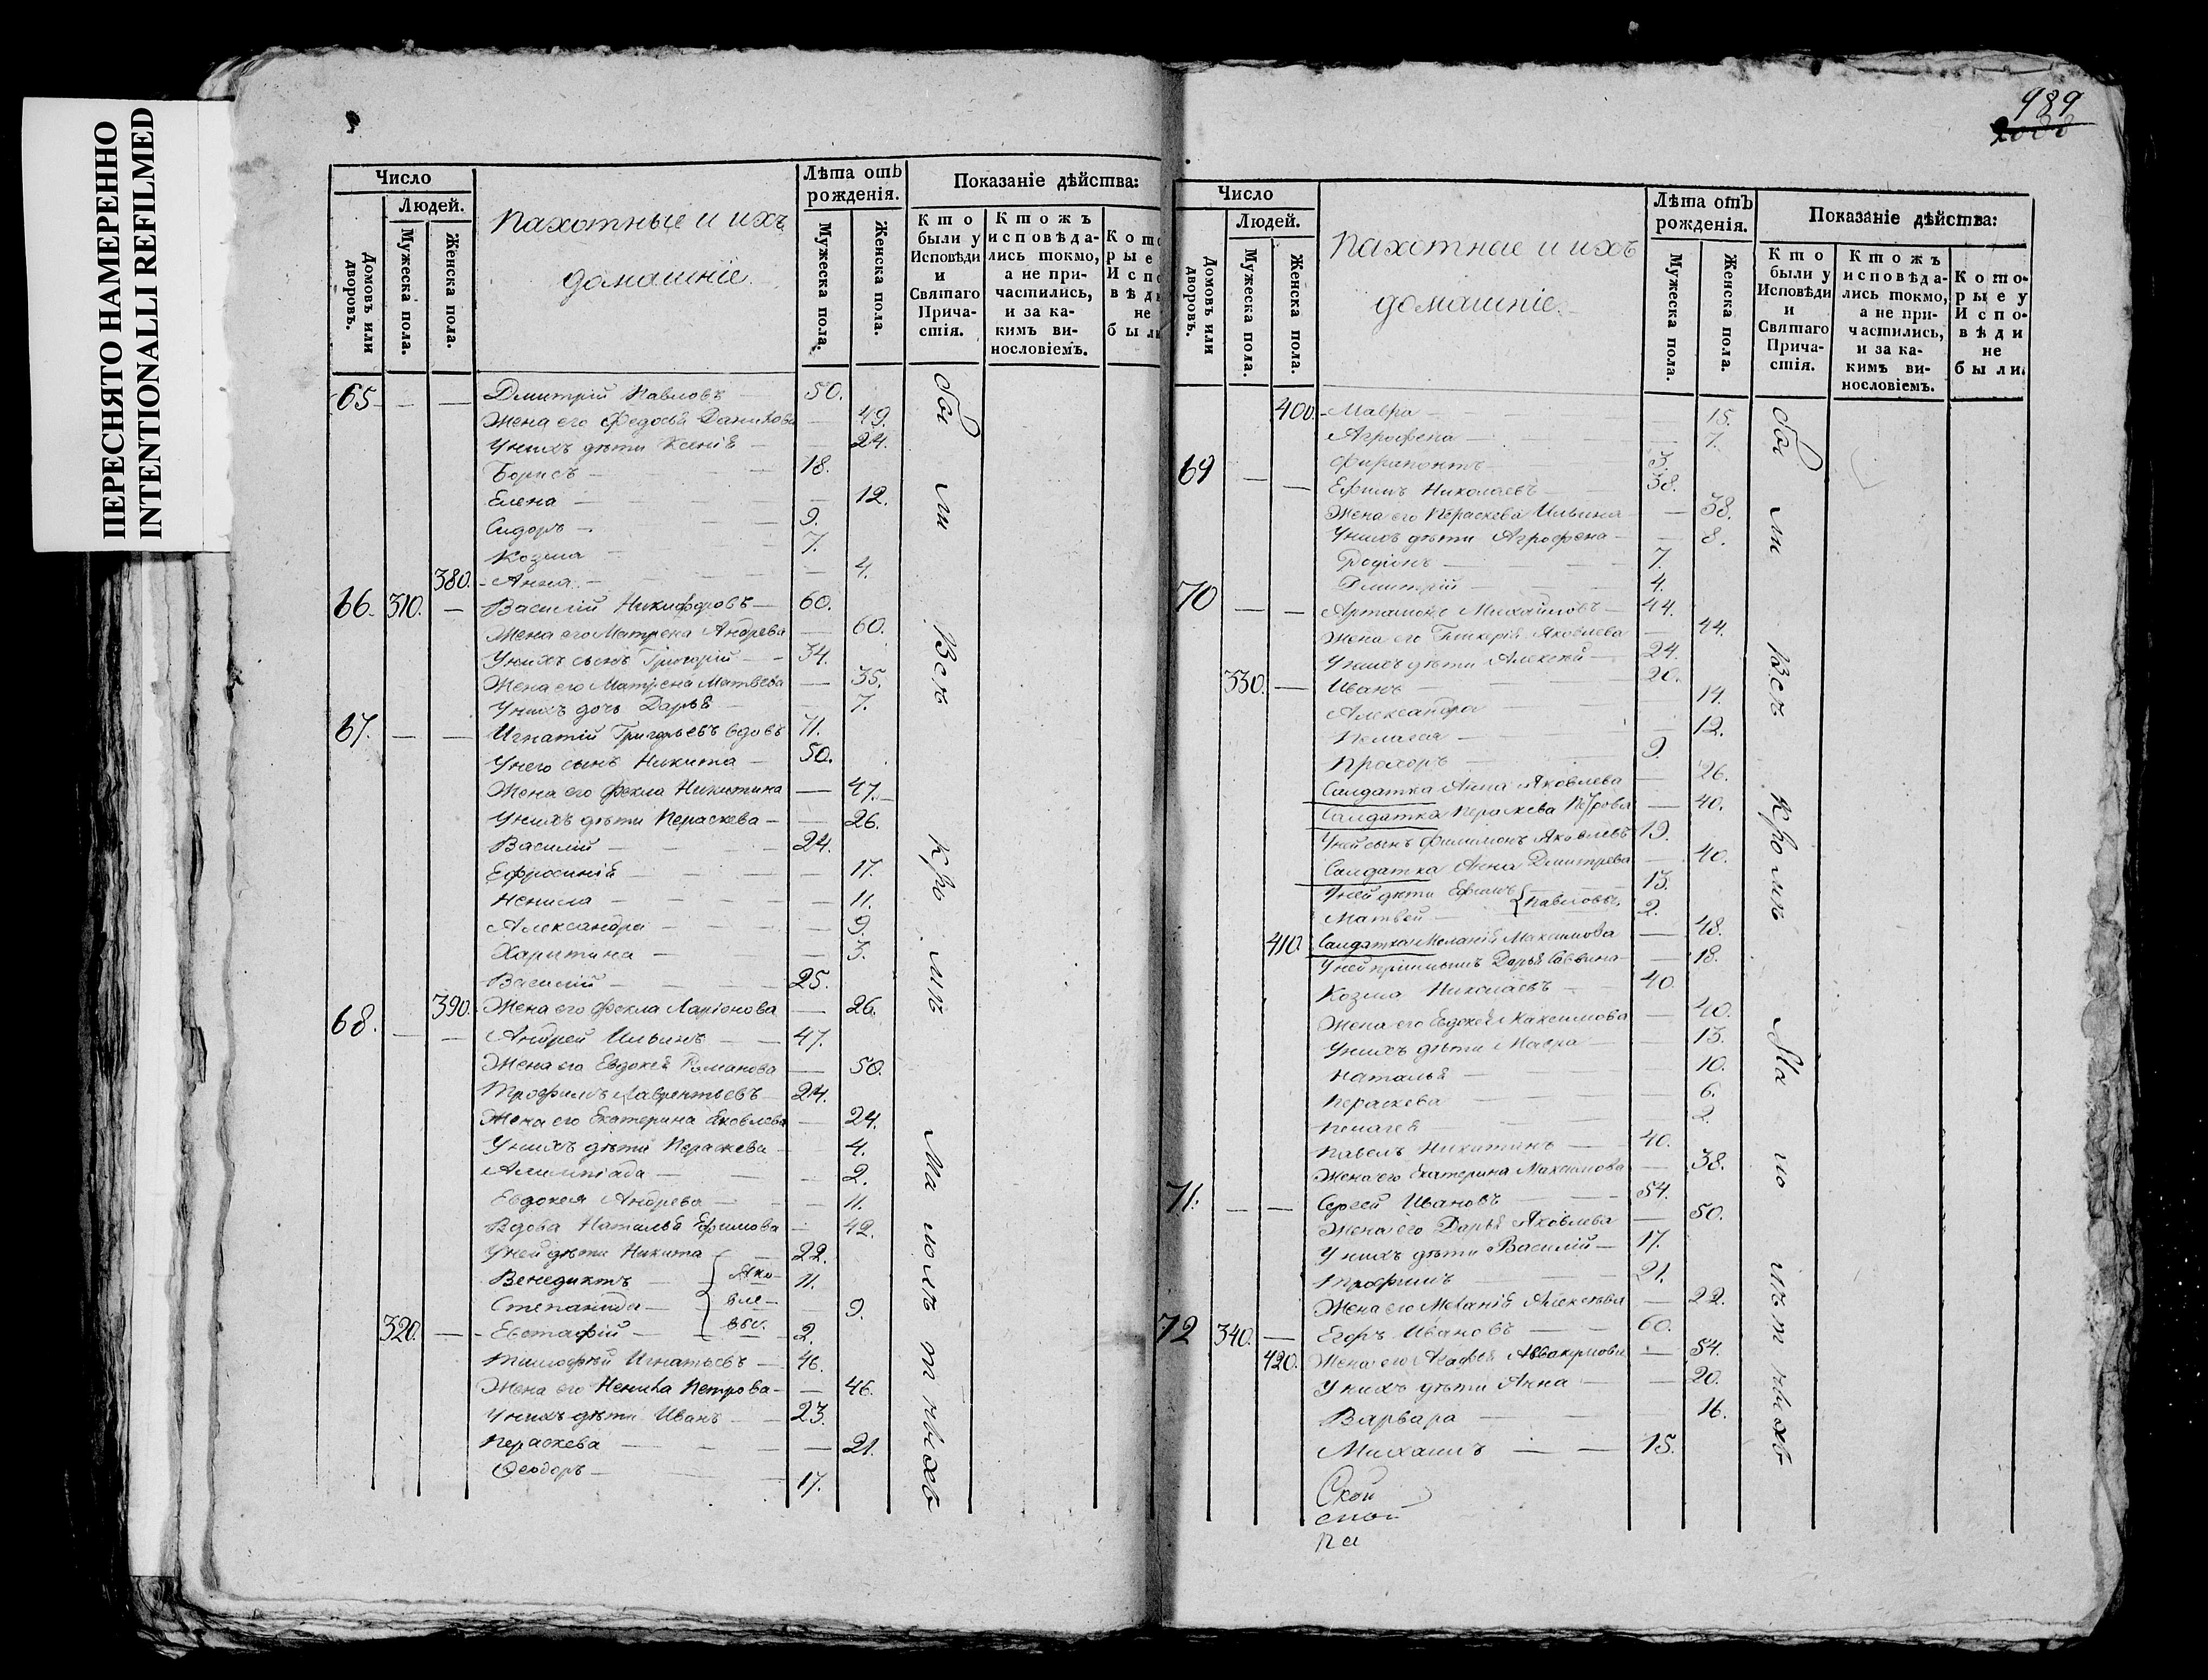 ПЕРЕСНЯТО НАМЕРЕННО
INTENTIONALLI REFILMED
Число
Людей.
Домовъ или дворовъ.
Мужеска пола.
Женска пола.
Пахотные и ихъ
домашніе.
Лѣта отъ рожденія.
Мужеска пола.
Женска пола.
Показаніе дѣйства:
Кто были у Исповѣди и Святаго Причастія.
Ктожъ исповѣдались токмо, а не причастились, и за какимъ винословіемъ.
65 — — Дмитрій Павловъ — 50.
Жена его Федосья — 49.
У нихъ дѣти Ксенія — 24.
Борисъ — 18.
Елена — 12.
Сидоръ — 9.
Козма — 7.
380. Анна — 4.
66. 310. — Василій Никифоровъ — 60.
Жена его Матрена Андрева — 60.
У нихъ сынъ Григорій — 34.
Жена его Матрена Матвѣева — 35.
У нихъ дочь Дарья — 7.
67. — — Игнатій Григорьевъ вдовъ 71.
У него сынъ Никита — 50.
Жена его Фекла Никитина — 47.
У нихъ дѣти Пераскева — 26.
Василій — 24.
Ефросинія — 17.
Ненила — 11.
Александра — 9.
Харитина — 3.
Василій — 25.
390. Жена его Фекла Ларіонова — 26.
68. — — Андрей Ильинъ — 47.
Жена его Евдокея Романова — 50.
Трофимъ Лаврентьевъ — 24.
Жена его Екатерина Яковлева — 24.
У нихъ дѣти Пераскева — 4.
Алимпіада — 2.
Евдокея Андрева — 11.
Вдова Наталья Ефимова — 42.
У ней дѣти Никита — 22.
Венедиктъ — Яко- 11.
Степанида — вле- 9.
320. — Евстафій — вы. 2.
Тимофѣй Игнатьевъ — 46.
Жена его Ненила Петрова — 46.
У нихъ дѣти Иванъ — 23.
Пераскева — 21.
Феодоръ — 17.
были
Всѣ
кромѣ
малолѣтныхъ
989
Число
Людей.
Домовъ или дворовъ.
Мужеска пола.
Женска пола.
Пахотные и ихъ
домашніе.
Лѣта отъ рожденія.
Мужеска пола.
Женска пола.
Показаніе дѣйства:
Кто были у Исповѣди и Святаго Причастія.
Ктожъ исповѣдались токмо, а не причастились, и за какимъ винословіемъ.
Которые у Исповѣди не были.
400. Мавра — 15.
Агрофена — 7.
Фирапонтъ — 3.
69 — — Ефимъ Николаевъ — 38.
Жена его Пераскева Ильина — 38.
У нихъ дѣти Агрофена — 8.
Родіонъ — 7.
Дмитрій — 4.
70 — — Артамонъ Михайловъ — 44.
Жена его Гликерія Яковлева — 44.
У нихъ дѣти Алексѣй — 24.
330. — Иванъ — 20.
Александра — 14.
Пелагея — 12.
Прохоръ — 9.
Салдатка Анна Яковлева — 26.
Салдатка Пераскева Петрова — 40.
У ней сынъ Филимонъ Яковлевъ 19.
Салдатка Анна Дмитрева — 40.
У ней дѣти Ефимъ — 13.
Матвей — Павловы. 2.
410. Салдатка Меланія Максимова — 48.
У ней Дарья Саввина — 18.
Козма Николаевъ — 40.
Жена его Евдокея Максимова — 40.
У нихъ дѣти Мавра — 13.
Наталья — 10.
Пераскева — 6.
Пелагея — 2.
Павелъ Никитинъ — 40.
Жена его Екатерина Максимова — 38.
71. — — Сергей Ивановъ — 54.
Жена его Дарья Яковлева — 50.
У нихъ дѣти Василій — 17.
Трофимъ — 21.
Жена его Меланія Алексѣева — 22.
72 340. — Егоръ Ивановъ — 60.
420. Жена его Агафья Аввакумова — 54.
У нихъ дѣти Анна — 20.
Варвара — 16.
Михаилъ — 15.
были
Всѣ
кромѣ
малолѣтныхъ